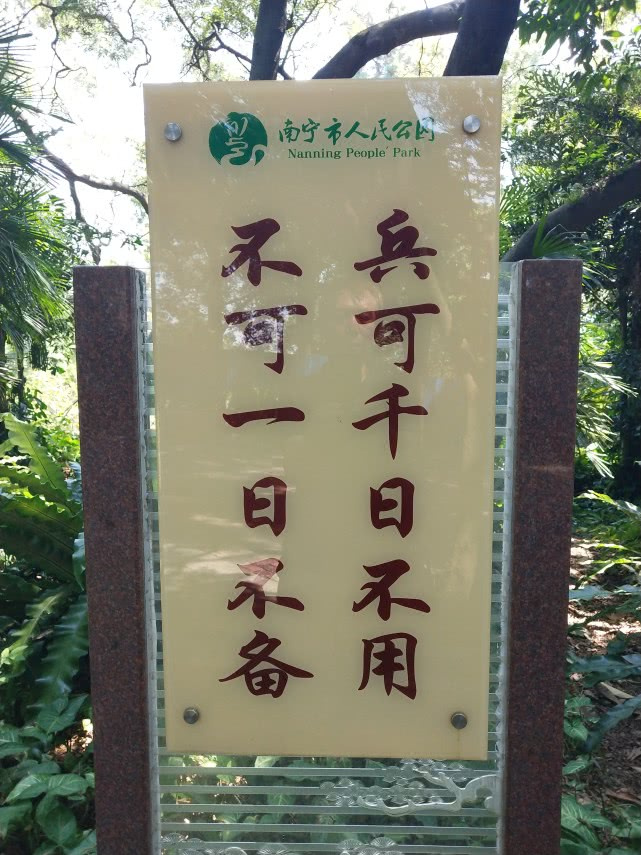 南宁市人民公园
Nanning People' Park
兵可千日不用
不可一日不备